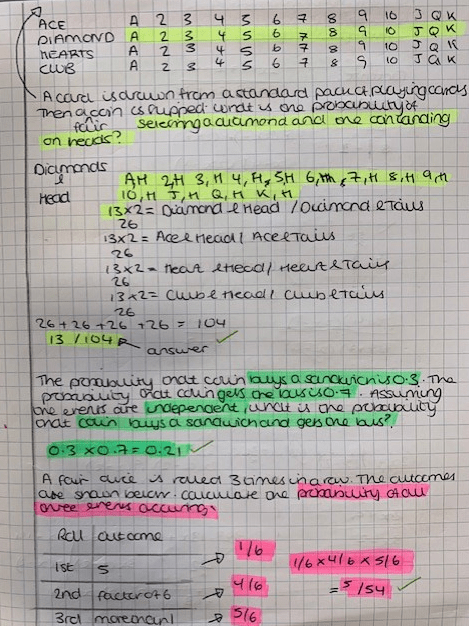 ACE A 2 3 4 5 6 7 8 9 10 J Q K
DIAMOND A 2 3 4 5 6 7 8 9 10 J Q K
HEARTS A 2 3 4 5 6 7 8 9 10 J Q K
CLUB A 2 3 4 5 6 7 8 9 10 J Q K
A card is drawn from a standard pack of playing cards
Then a coin is flipped what is the probability of
fair selecting a diamond and one coin landing
on heads?
Diamonds
& A,H 2,H 3,H 4,H, 5,H 6,H, 7,H 8,H 9,H
Head 10,H J,H Q,H K,H
13x2 = Diamond & Head / Diamond & Tails
26
13x2 = Ace & Head / Ace & Tails
26
13x2 = Heart & Head / Heart & Tails
26
13x2 = Club & Head / Club & Tails
26
26 + 26 + 26 + 26 = 104
13 / 104
answer
The probability that colin buys a sandwich is 0.3. The
probability that colin gets the bus is 0.7. Assuming
the events are independent, what is the probability
that colin buys a sandwich and gets the bus?
0.3 x 0.7 = 0.21
A fair dice is rolled 3 times in a row. The outcomes
are shown below. calculate the probability of all
three events occuring.
Roll outcome
1st 5 → 1/6 1/6 x 4/6 x 5/6
2nd factor of 6 → 4/6 = 5/54
3rd more than 1 → 5/6